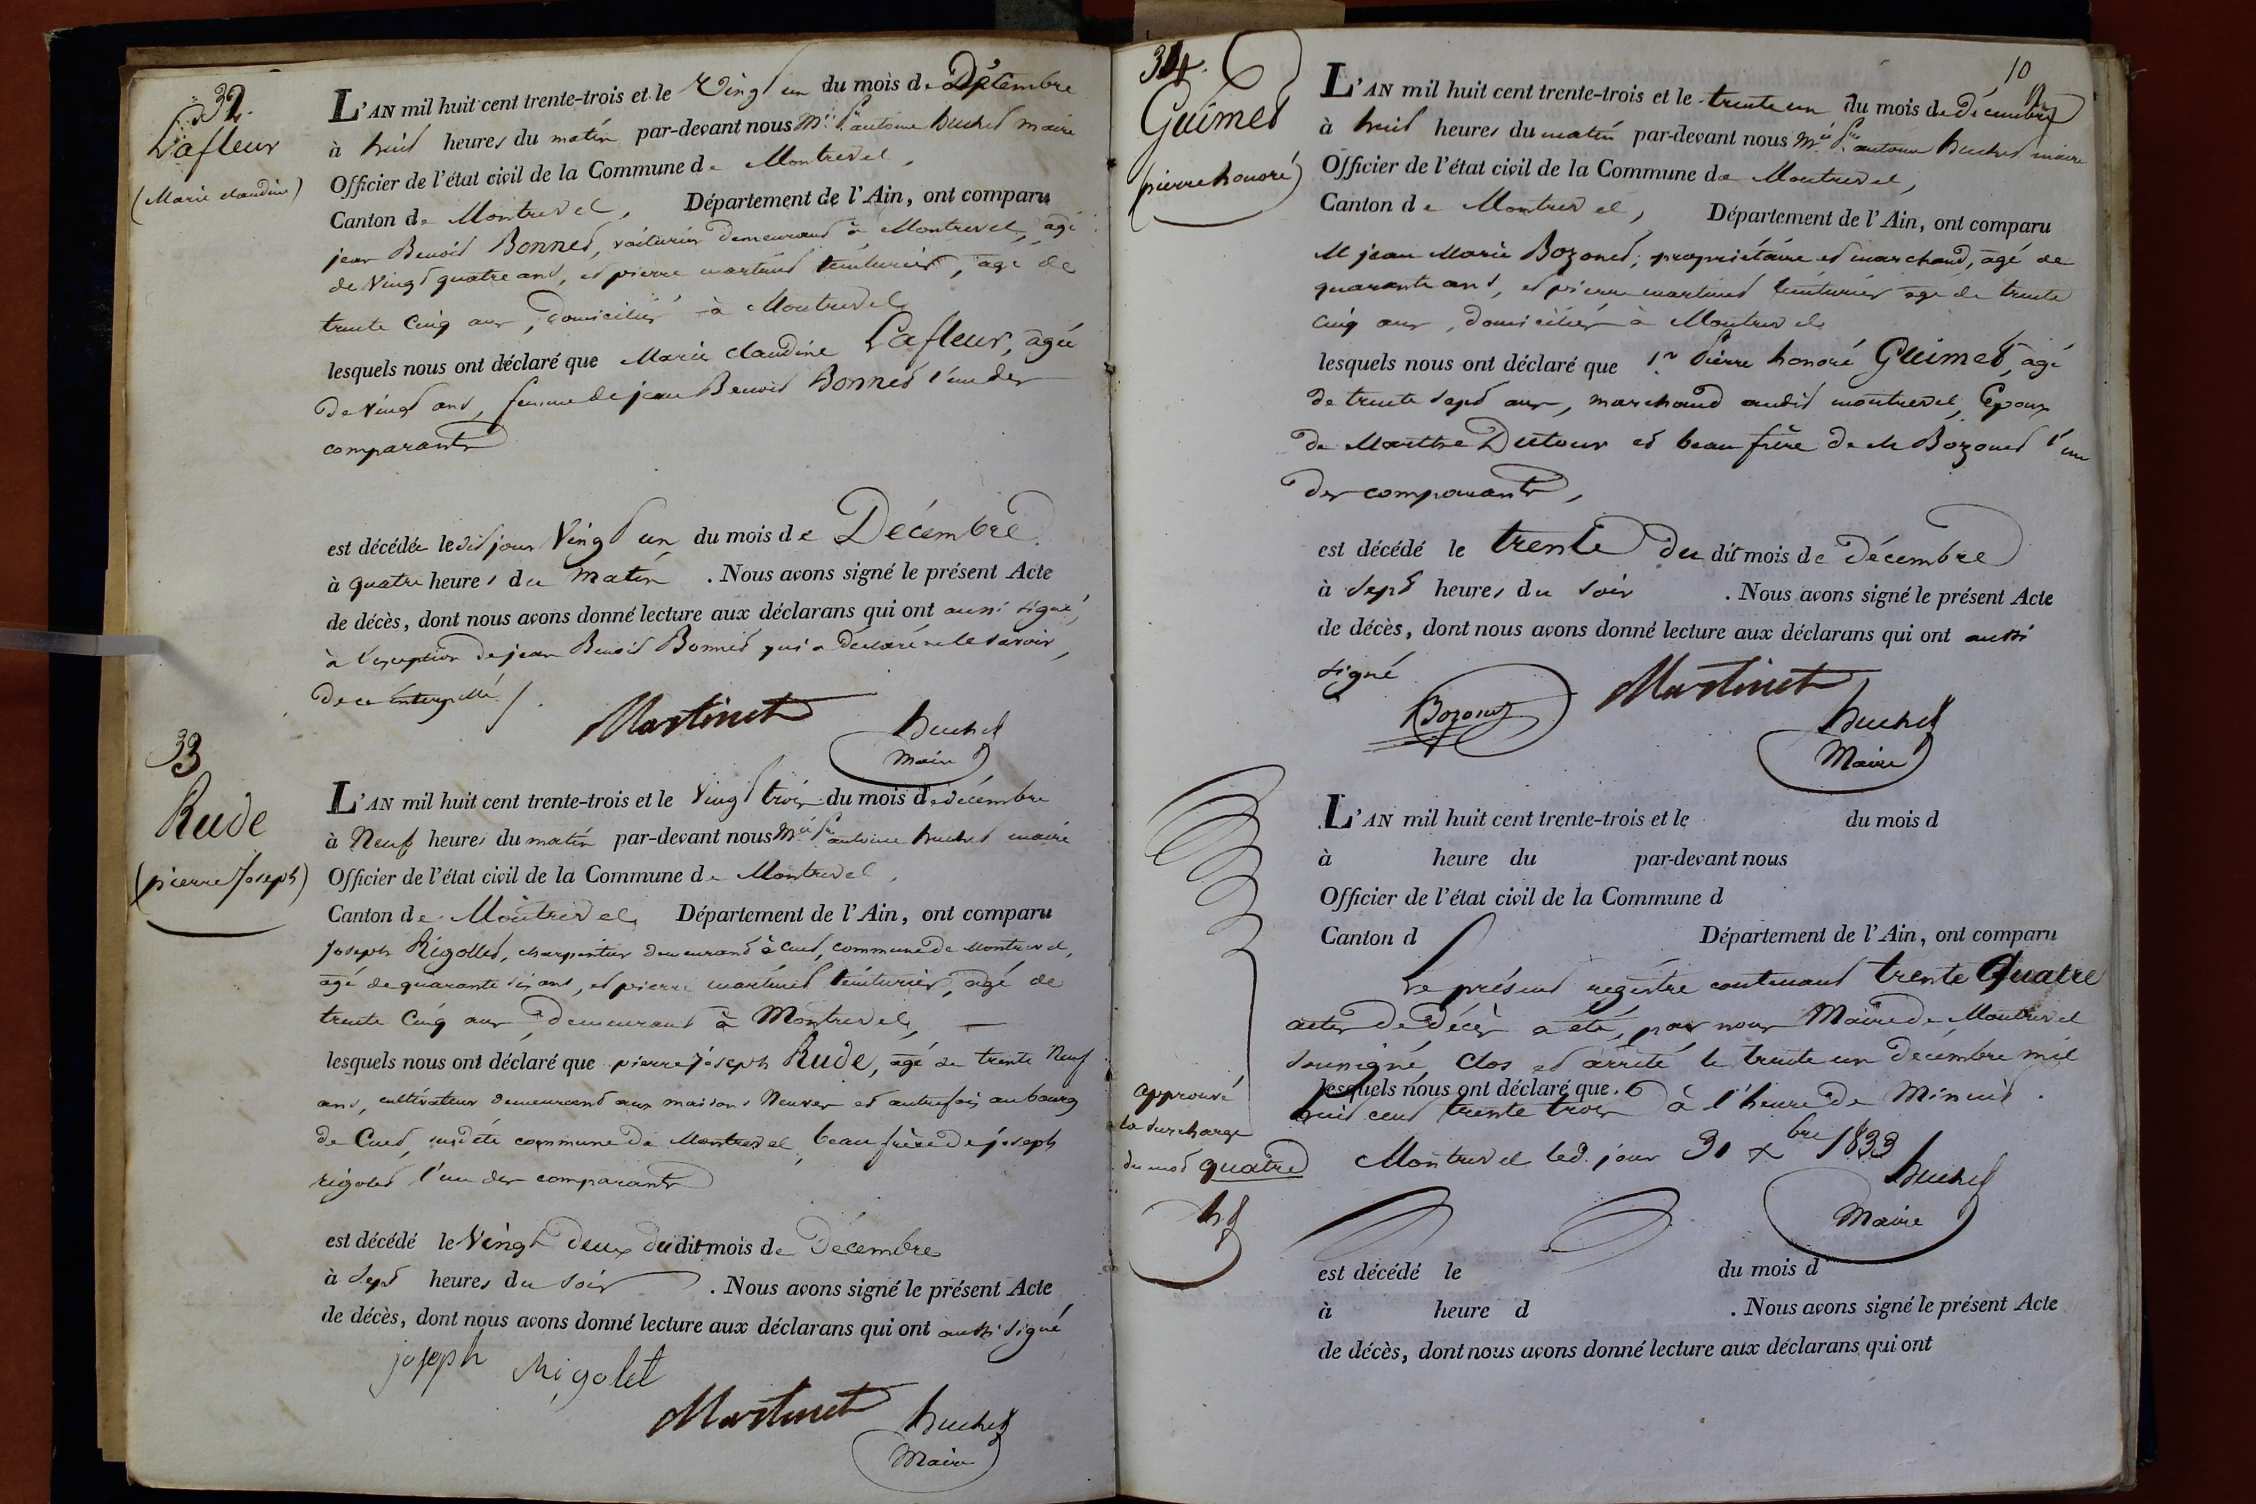 32.
Lafleur
(Marie claudine)
L'AN mil huit cent trente-trois et le Vingt un du mois de Décembre
à huit heures du matin par-devant nous antoine Buchet maire
Officier de l'état civil de la Commune de Montrevel,
Canton de Montrevel, Département de l'Ain, ont comparu
jean Benoit Bonnet, voiturier demeurant à Montrevel, agé
de Vingt quatre ans, et pierre martinet teinturier, agé de
trente Cinq ans, domiciliés à Montrevel
lesquels nous ont déclaré que Marie claudine Lafleur, agée
de Vingt ans, femme de jean Benoit Bonnet l'un des
comparants
est décédée ledit jour Vingt un du mois de Décembre
à quatre heures du matin . Nous avons signé le présent Acte
de décès, dont nous avons donné lecture aux déclarans qui ont aussi signé,
à l'exception de jean Benoit Bonnet qui a déclaré ne le savoir,
de ce Interpellé ./.
Martinet
Buchet
Maire
33
Rude
(pierre Joseph)
L'AN mil huit cent trente-trois et le Vingt trois du mois de décembre
à Neuf heures du matin par-devant nous antoine Buchet maire
Officier de l'état civil de la Commune de Montrevel,
Canton de Montrevel, Département de l'Ain, ont comparu
Joseph Rigollet, charpentier demeurant à Cuet, commune de Montrevel,
agé de quarante six ans, et pierre martinet teinturier, agé de
trente Cinq ans demeurant à Montrevel,
lesquels nous ont déclaré que pierre joseph Rude, agé de trente Neuf
ans, cultivateur demeurant aux maisons Neuves et autrefois au bourg
de Cuet, susdite commune de Montrevel, beau frère de joseph
rigolet l'un des comparants
est décédé le Vingt deux du dit mois de Décembre
à Sept heures du soir . Nous avons signé le présent Acte
de décès, dont nous avons donné lecture aux déclarans qui ont aussi signé
joseph Rigolet
Martinet
Buchet
Maire
10
34.
Guimet
(pierre honoré)
L'AN mil huit cent trente-trois et le trente un du mois de décembre
à huit heures du matin par-devant nous antoine Buchet maire
Officier de l'état civil de la Commune de Montrevel,
Canton de Montrevel, Département de l'Ain, ont comparu
M jean Marie Bozonet, propriétaire et marchand, agé de
quarante ans, et pierre martinet teinturier agé de trente
Cinq ans, domiciliés à Montrevel
lesquels nous ont déclaré que Sr. Pierre honoré Guimet, agé
de trente sept ans, marchand audit montrevel, Epoux
de Marthe Dutour et beau frère de M Bozonet l'un
des comparants,
est décédé le trente du dit mois de Décembre
à Sept heures du soir . Nous avons signé le présent Acte
de décès, dont nous avons donné lecture aux déclarans qui ont aussi
signé
Bozonet
Martinet
Buchet
Maire
L'AN mil huit cent trente-trois et le du mois d
à heure du par-devant nous
Officier de l'état civil de la Commune d
Canton d Département de l'Ain, ont comparu
Le présent registre contenant trente Quatre
actes de Décès a été, par nous Maire de Montrevel
soussigné, Clos et arrêté le trente un décembre mil
lesquels nous ont déclaré que
huit cent trente trois à l'heure de Minuit.
Montrevel led. jour 31 Xbre 1833
Buchet
Maire
approuvé
la surcharge
du mot quatre
est décédé le du mois d
à heure d . Nous avons signé le présent Acte
de décès, dont nous avons donné lecture aux déclarans qui ont